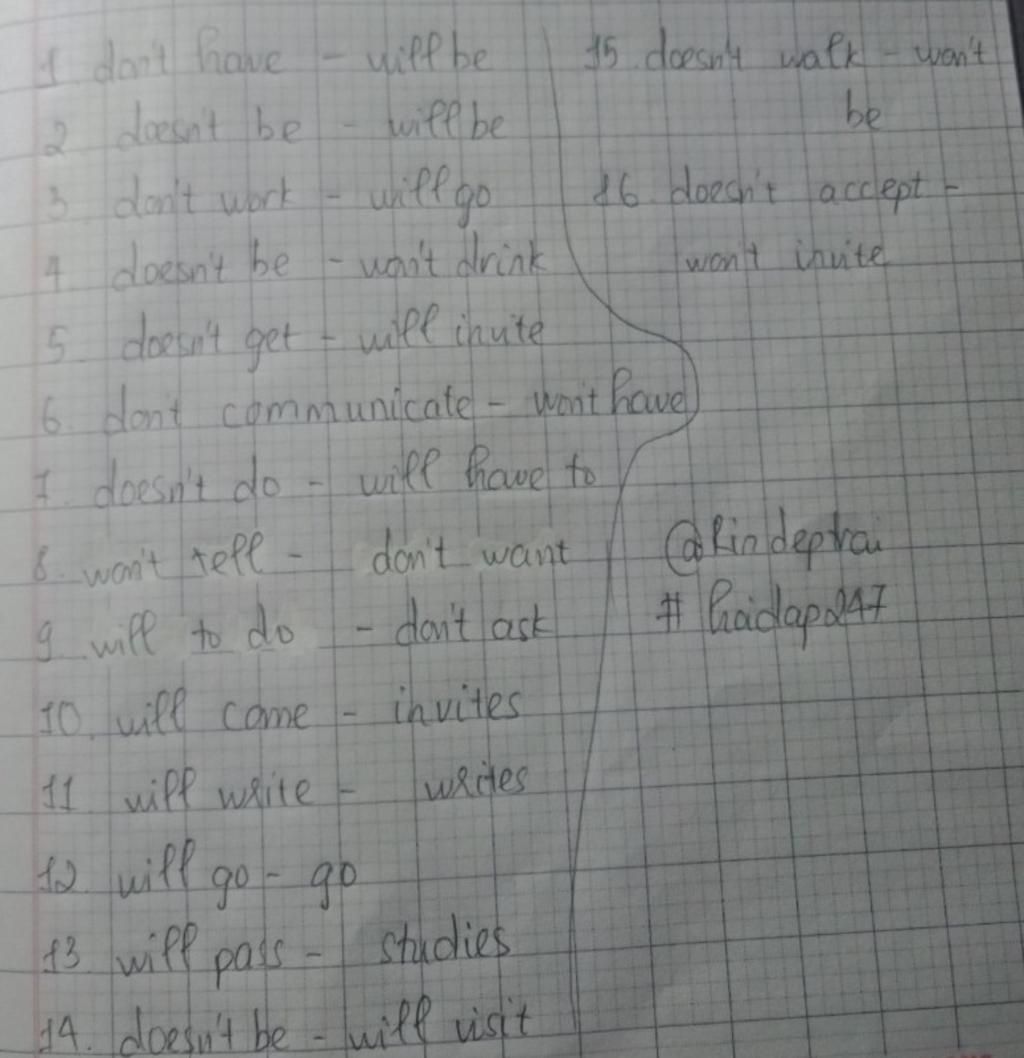 1 don't have - will be
2 doesn't be - will be
3 don't work - will go
4 doesn't be - won't drink
5. doesn't get - will invite
6. don't communicate - won't have
7. doesn't do - will have to
8. won't tell - don't want
9 will to do - don't ask
10. will come - invites
11 will write - writes
12. will go - go
13 will pass - studies
14. doesn't be - will visit
15 doesn't walk - won't
be
16 doesn't accept -
won't invite
@Rindeptrai
# hoidap247